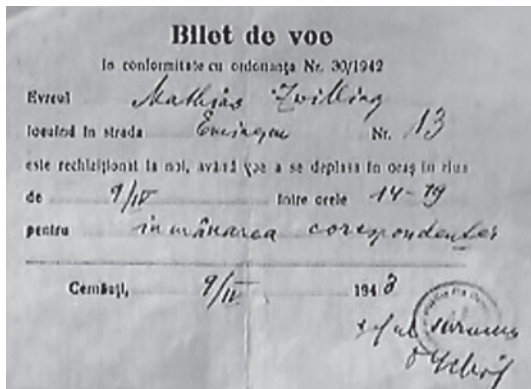 Bilet de voe
In conformitate cu ordonanța Nr. 30/1942
Evreul Mathias Zwilling
locuind în strada Eminescu Nr. 13
este rechiziționat la noi, având voe a se deplasa în oraș în ziua
de 9/IV între orele 14-19
pentru înmânarea corespondenței
Cernăuți, 9/IV 1943